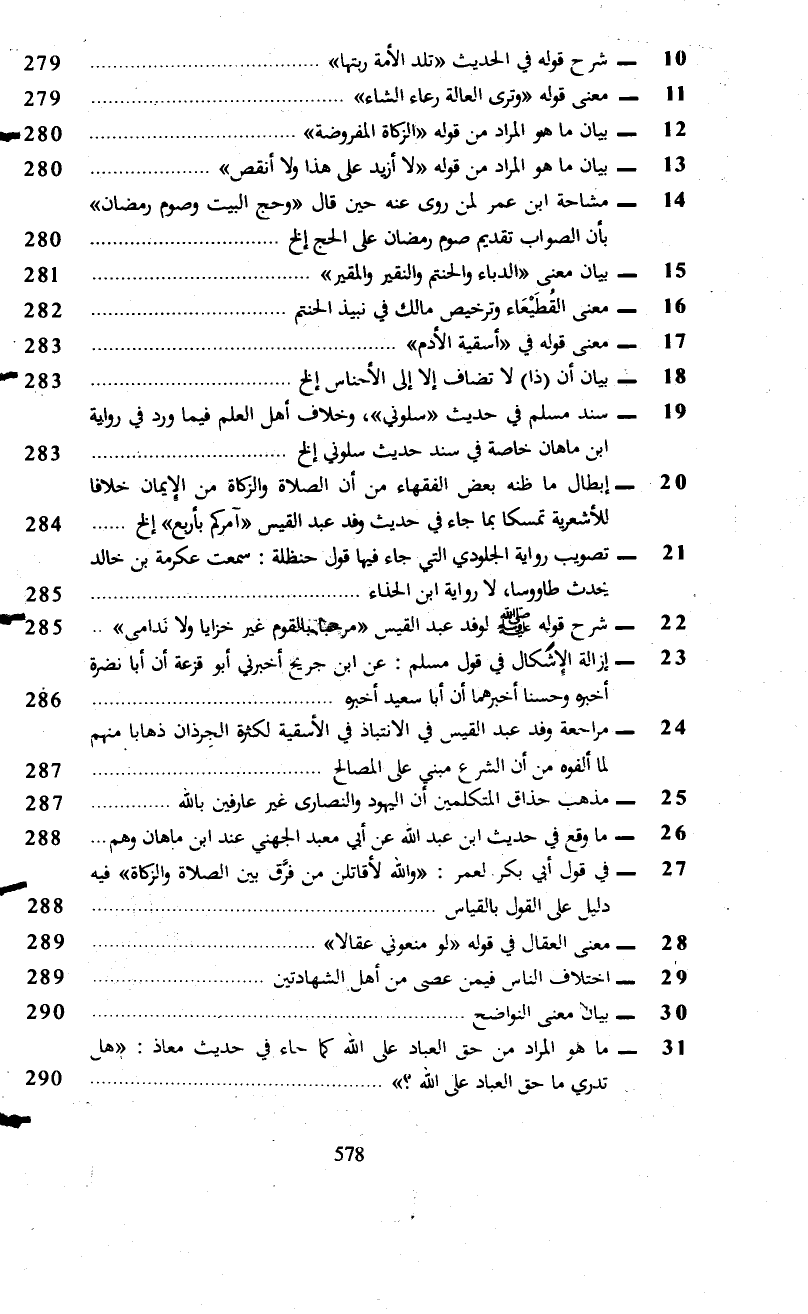 10 — شرح قوله في الحديث «تلد الأمة ربتها» ........ 279
11 — معنى قوله «وترى العالة رعاء الشاء» ........ 279
12 — بيان ما هو المراد من قوله «الزكاة المفروضة» ........ 280
13 — بيان ما هو المراد من قوله «لا أزيد على هذا ولا أنقص» ........ 280
14 — مشاحة ابن عمر لمن روى عنه حين قال «وحج البيت وصوم رمضان»
بأن الصواب تقديم صوم رمضان على الحج إلخ ........ 280
15 — بيان معنى «الدباء والحنتم والنقير والمقير» ........ 281
16 — معنى القُطَيْعَاء وترخيص مالك في نبيذ الحنتم ........ 282
17 — معنى قوله في «أسقية الأدم» ........ 283
18 — بيان أن (ذا) لا تضاف إلا إلى الأجناس إلخ ........ 283
19 — سند مسلم في حديث «سلوني»، وخلاف أهل العلم فيما ورد في رواية
ابن ماهان خاصة في سند حديث سلوني إلخ ........ 283
20 — إبطال ما ظنه بعض الفقهاء من أن الصلاة والزكاة من الإيمان خلافا
للأشعرية تمسكا بما جاء في حديث وفد عبد القيس «آمركم بأربع» إلخ ...... 284
21 — تصويب رواية الجلودي التي جاء فيها قول حنظلة : سمعت عكرمة بن خالد
يحدث طاووسا، لا رواية ابن الحذاء ........ 285
22 — شرح قوله ﷺ لوفد عبد القيس «مرحبا بالقوم غير خزايا ولا نَدامى» .. 285
23 — إزالة الإشكال في قول مسلم : عن ابن جريج أخبرني أبو قزعة أن أبا نضرة
أخبره وحسنا أخبرهما أن أبا سعيد أخبره ........ 286
24 — مراجعة وفد عبد القيس في الانتباذ في الأسقية لكثرة الجرذان ذهابا منهم
لما ألفوه من أن الشرع مبني على المصالح ........ 287
25 — مذهب حذاق المتكلمين أن اليهود والنصارى غير عارفين بالله ........ 287
26 — ما وقع في حديث ابن عبد الله عن أبي معبد الجهني عند ابن ماهان وهم ... 288
27 — في قول أبي بكر لعمر : «والله لأقاتلن من فرَّق بين الصلاة والزكاة» فيه
دليل على القول بالقياس ........ 288
28 — معنى العقال في قوله «لو منعوني عقالا» ........ 289
29 — اختلاف الناس فيمن عصى من أهل الشهادتين ........ 289
30 — بيان معنى النواضح ........ 290
31 — ما هو المراد من حق العباد على الله كما جاء في حديث معاذ : «هل
تدري ما حق العباد على الله ؟» ........ 290
578